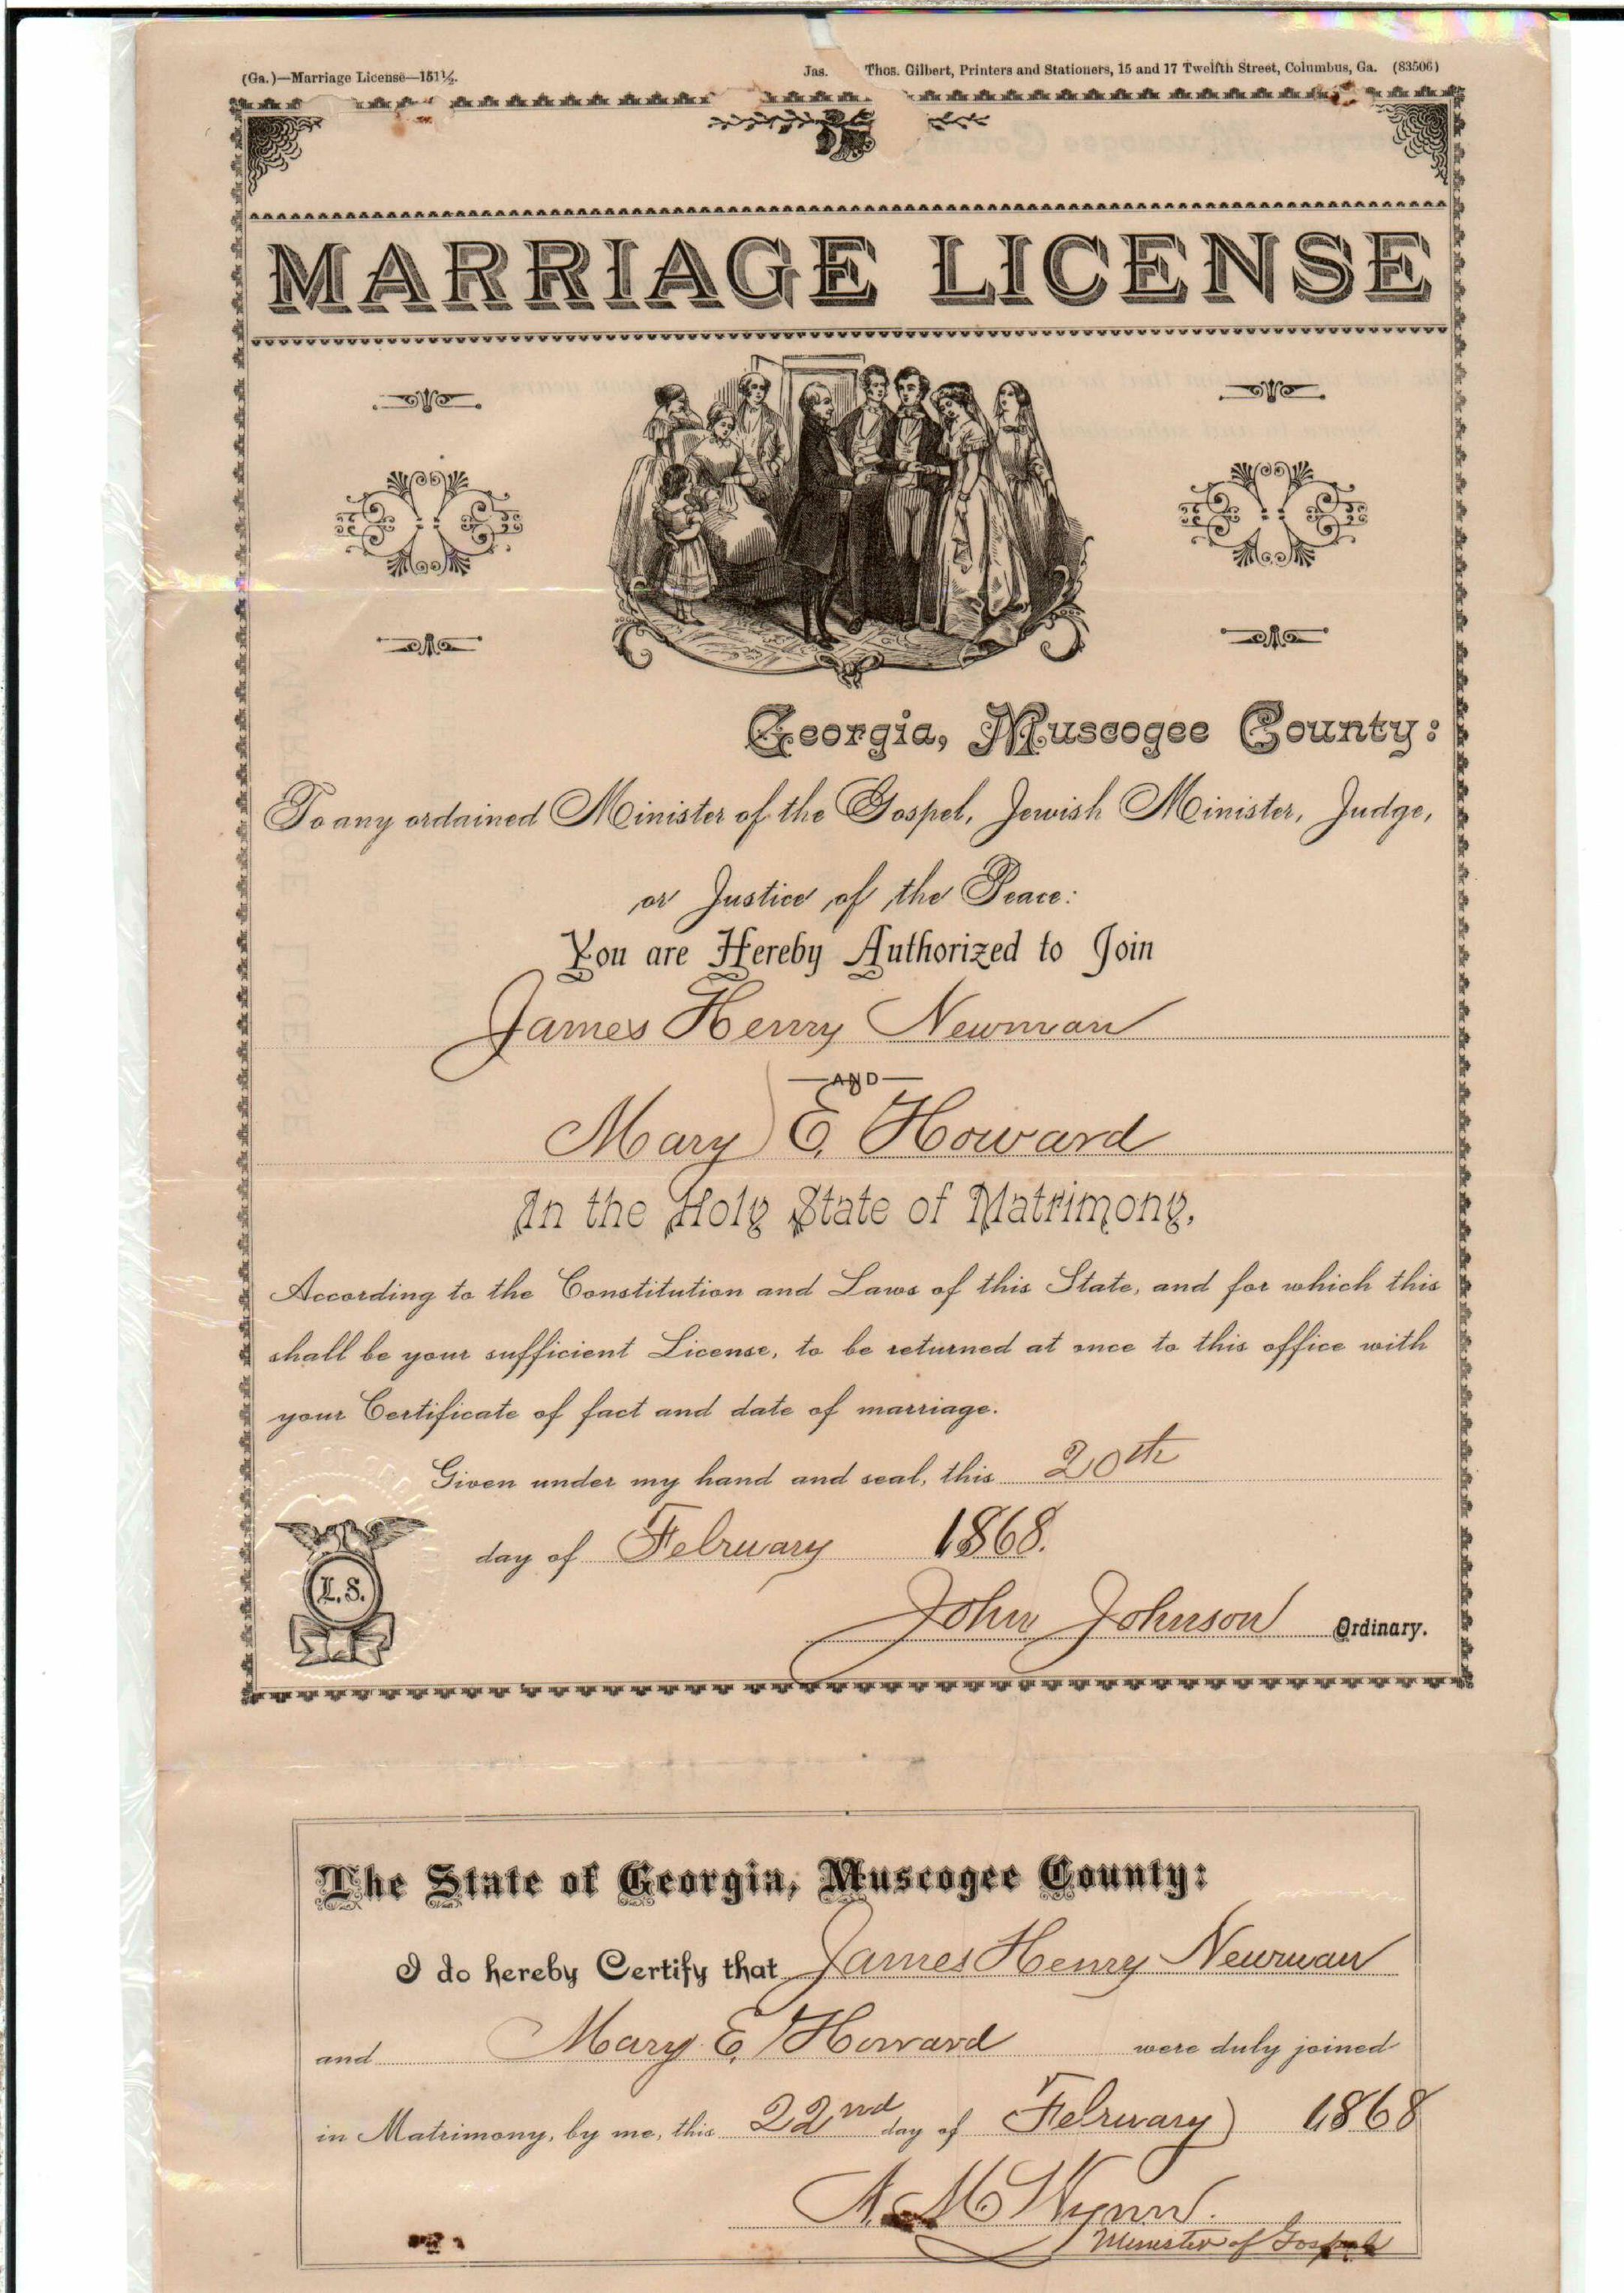 (Ga.)—Marriage License—151½. Jas. Thos. Gilbert, Printers and Stationers, 15 and 17 Twelfth Street, Columbus, Ga. (83506)
MARRIAGE LICENSE
Georgia, Muscogee County:
To any ordained Minister of the Gospel, Jewish Minister, Judge,
or Justice of the Peace:
You are Hereby Authorized to Join
James Henry Newman
—AND—
Mary E. Howard
In the Holy State of Matrimony,
According to the Constitution and Laws of this State, and for which this
shall be your sufficient License, to be returned at once to this office with
your Certificate of fact and date of marriage.
Given under my hand and seal, this 20th
day of February 1868.
L. S.
John Johnson Ordinary.
The State of Georgia, Muscogee County:
I do hereby Certify that James Henry Newman
and Mary E. Howard were duly joined
in Matrimony, by me, this 22nd day of February 1868
A. M Wynn.
Minister of Gospel